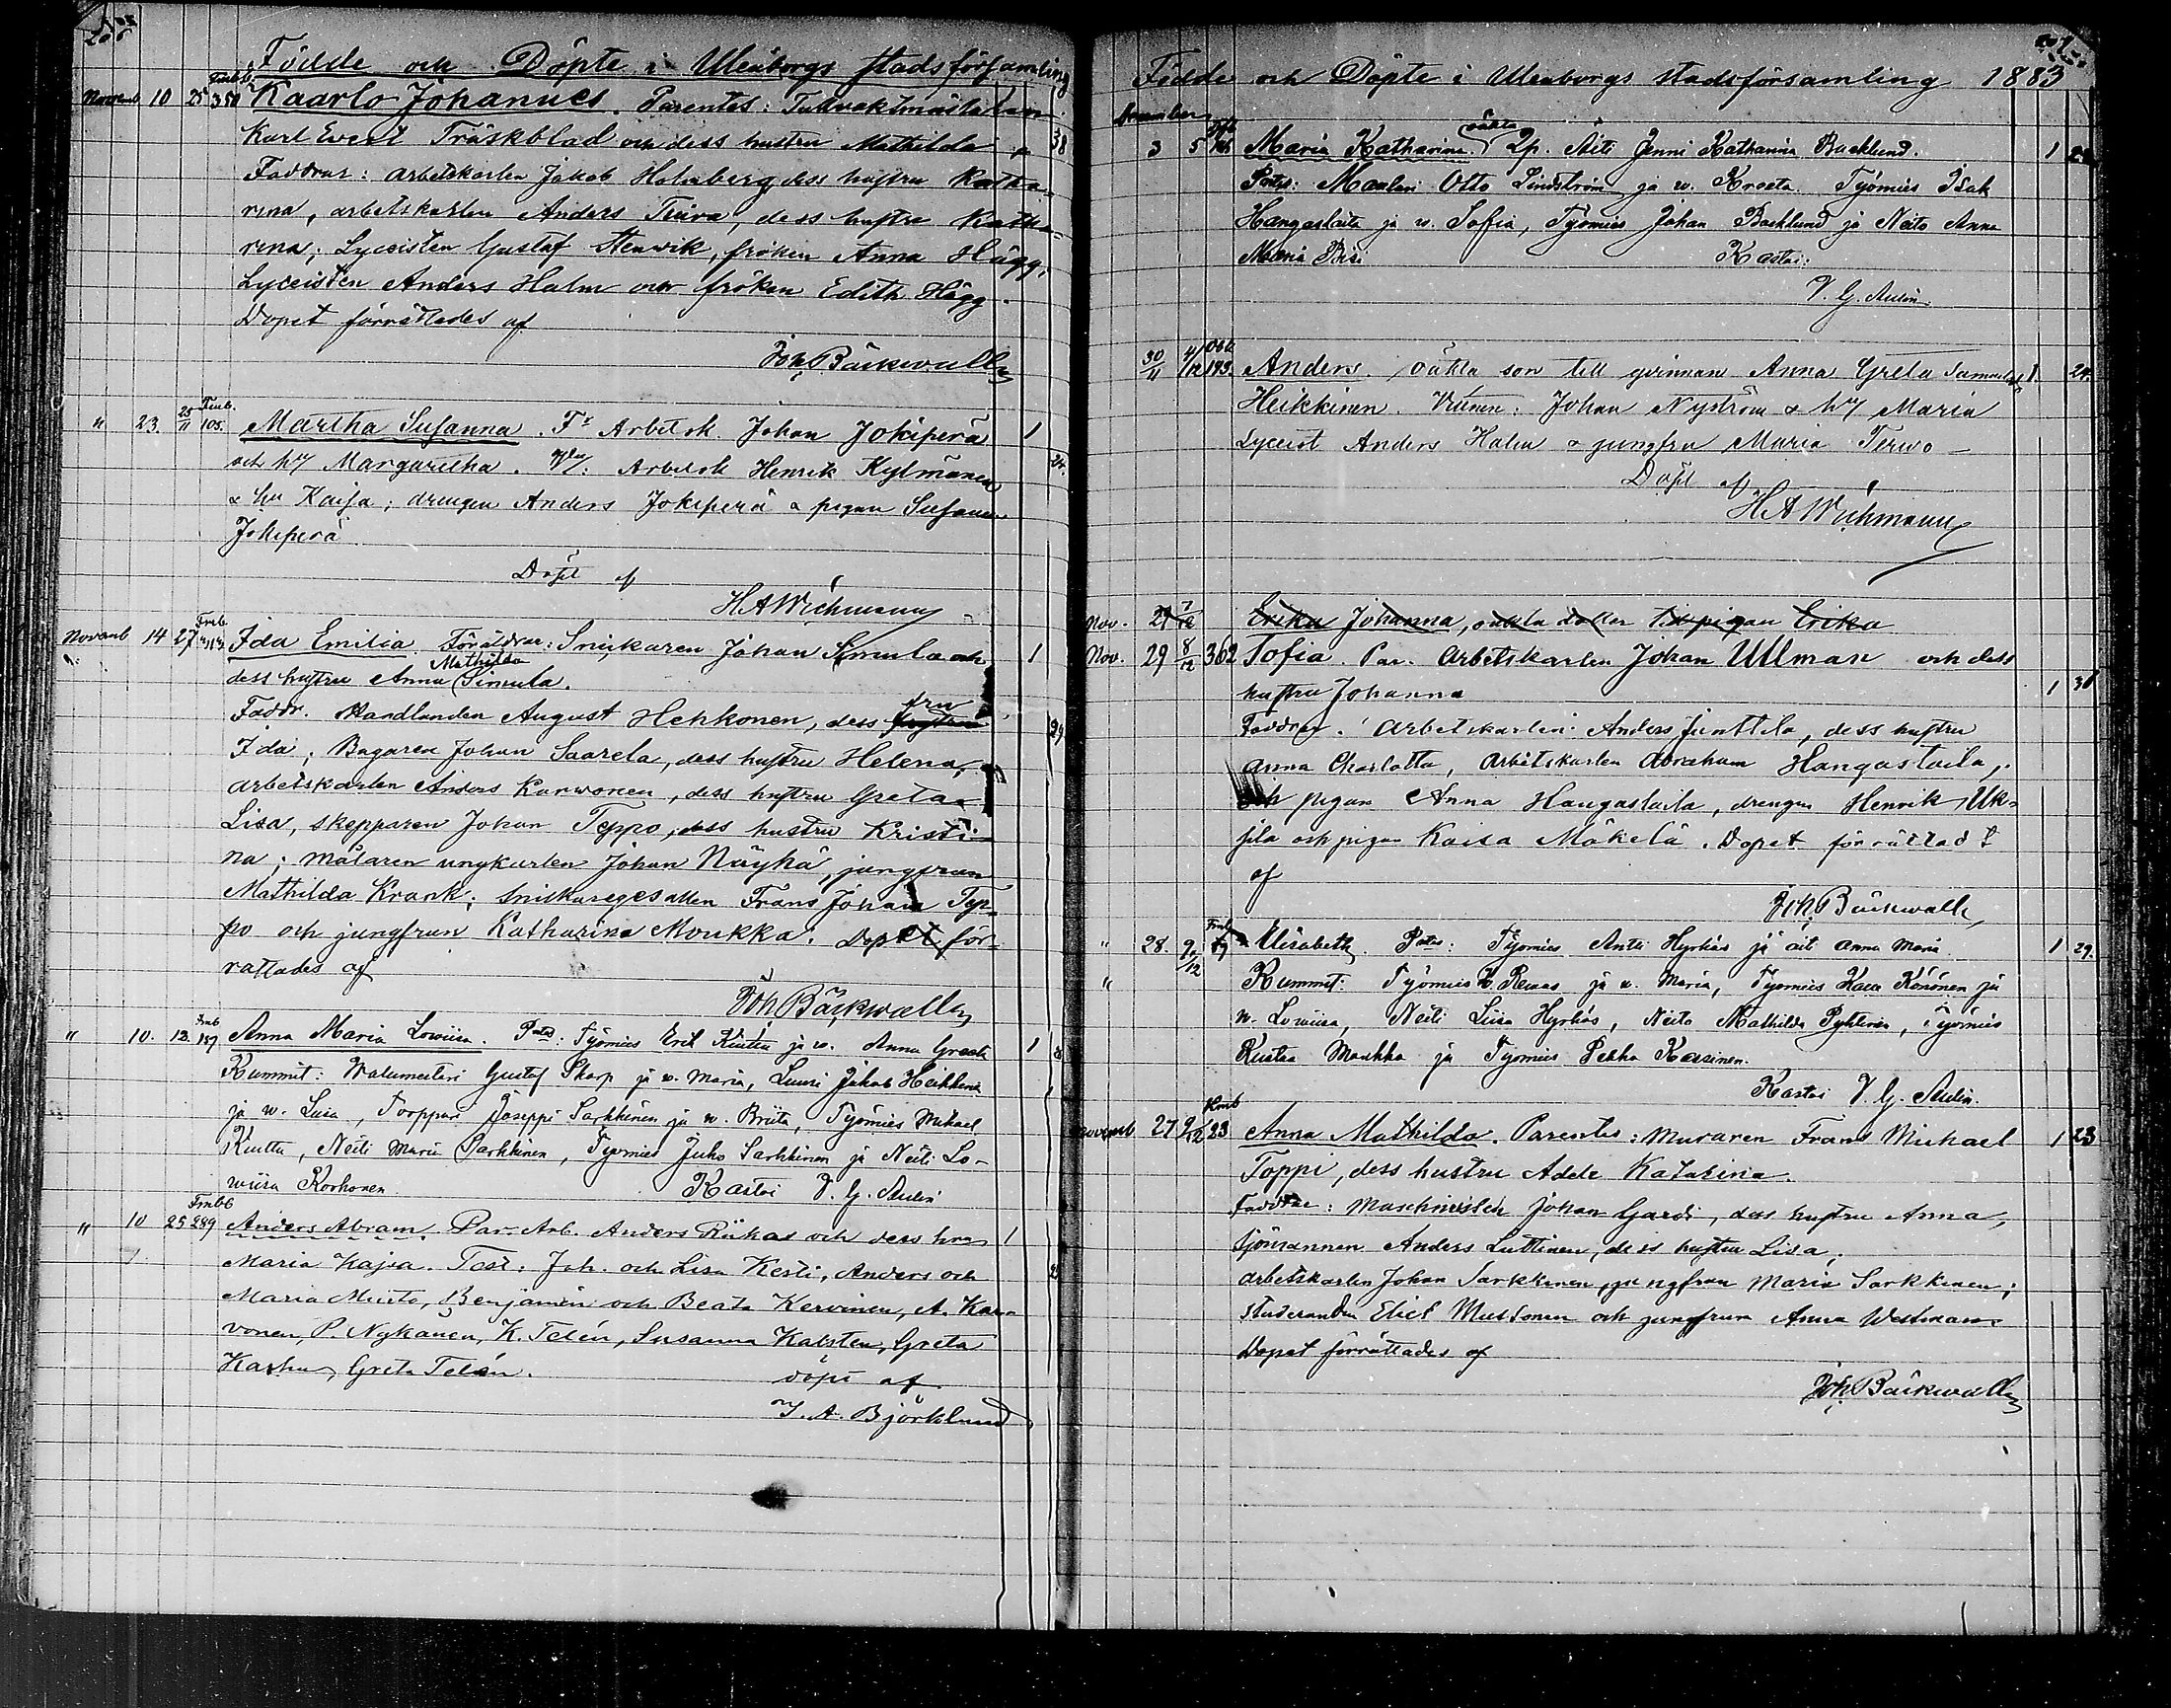 Födde och Döpte i Uleåborgs stadsförsamling
Novemb 10 25 350 Kaarlo Johannes. Parentes:
Karl Evert Träskblad och dess hustru Mathilda 38
Faddrar: arbetskarlen Jakob Holmberg dess hustru Katha-
rina, arbetskarlen Anders Tuira, dess hustru Katha-
rina; Lyceisten Gustaf Stenwik, fröken Anna Hägg,
Lyceisten Anders Halm och fröken Edith Hägg.
Dopet förrättades af
Joh. Bäckwall
" 23. 25/11 105. Martha Susanna. Arbetsk. Johan Jokiperä 1
och hu Margaretha. Arbetsk Henrik Kylmänen 24.
& hu Kaisa; drengen Anders Jokiperä & pigan Susanna
Jokiperä
Döpt af
HAWichmann
Novemb 14 27 Ida Emilia Föräldrar: Snickaren Johan Simula och 1
dess hustru Anna Mathilda Simula.
Faddr. Handlanden August Hehkonen, dess fru
Ida; Bagaren Johan Saarela, dess hustru Helena, 29
arbetskarlen Anders Karwonen, dess hustru Greta
Lisa, skepparen Johan Teppo, dess hustru Kristi-
na; målaren ungkarlen Johan Näyhä, jungfrun
Mathilda Krank; snickaregesällen Frans Johan Tep-
po och jungfrun Katharina Moukka. Dopet för-
rättades af
Joh Bäckwall
" 10. 13. 157 Anna Maria Lowiisa. Työmies Erik Kiutta ja w. Anna Greta 1
Kummit: Walumestari Gustaf Skarp ja w. Maria, Jakob Heikkinen
ja w. Liisa, Torppari Joseppi Sarkkinen ja w. Briita, Työmies Mikael
Kiutta, Neiti Maria Sarkkinen, Työmies Juho Sarkkinen ja Neiti Lo-
wiisa Korhonen. Kastoi V. G. Aulin
" 10 25 289 Anders Abram. Par. Arb. Anders Riikas och dess hru 1
Maria Kajsa. Test: Joh. och Lisa Kesti, Anders och
Maria Miesto, Benjamin och Beata Kervinen, A. Kar-
vonen, P. Nykänen, K. Telén, Susanna Karsten, Greta
Karhu, Greta Telén. döpt af
I. A. Björklund
Födde och Döpte i Uleåborgs stadsförsamling 1883
November
3 5 Maria Katharina oäkta Äiti Jenni Katharina Backlund. 1
Maalari Otto Lindström ja w. Kreeta. Työmies Isak
Hangaslaita ja w. Sofia, Työmies Johan Backlund ja Neito Anna
Maria Kastoi:
V. G. Aulin.
30/11 4/12 193. Anders. oäkta son till qvinnan Anna Greta 1 24.
Heikkinen. Vittnen: Johan Nyström & hu Maria
Lyceist Anders Halm & jungfru Maria Terwo
Döpt af
HAWichmann
Nov. 29 7/12 Erika Johanna, oäkta dotter till pigan Erika
Nov. 29 8/12 362 Sofia. Par. Arbetskarlen Johan Ullman och dess
hustru Johanna 1 38
Faddrar: Arbetskarlen Anders Junttila, dess hustru
Anna Charlotta, Arbetskarlen Abraham Hangaslaila,
och pigan Anna Hangaslaila, drengen Henrik Uk-
jila och pigan Kaisa Mäkelä. Dopet förrättadt
af
Joh. Bäckwall
" 28. 9/12 Elisabeth. Työmies Antti Hyrkäs ja äiti Anna Maria 1 29.
" Kummit: Työmies ja w. Maria, Työmies Könönen ja
w. Lowiisa, Neiti Liisa Hyrkäs, Neito Mathilda Työmies
Kustaa Moukka ja Työmies Pekka
Kastoi V. G. Aulin.
Novemb 27 9/12 23 Anna Mathilda. Parentes: muraren Frans Michael 1 23
Toppi, dess hustru Adele Katarina.
Faddrar: Maschinisten Johan Gardi, dess hustru Anna,
sjömannen Anders Luttinen, dess hustru Lisa,
arbetskarlen Johan Sarkkinen, jungfrun Maria Sarkkinen;
studeranden Eliel Mustonen och jungfrun Anna Westman.
Dopet förrättades af
Joh. Bäckwall